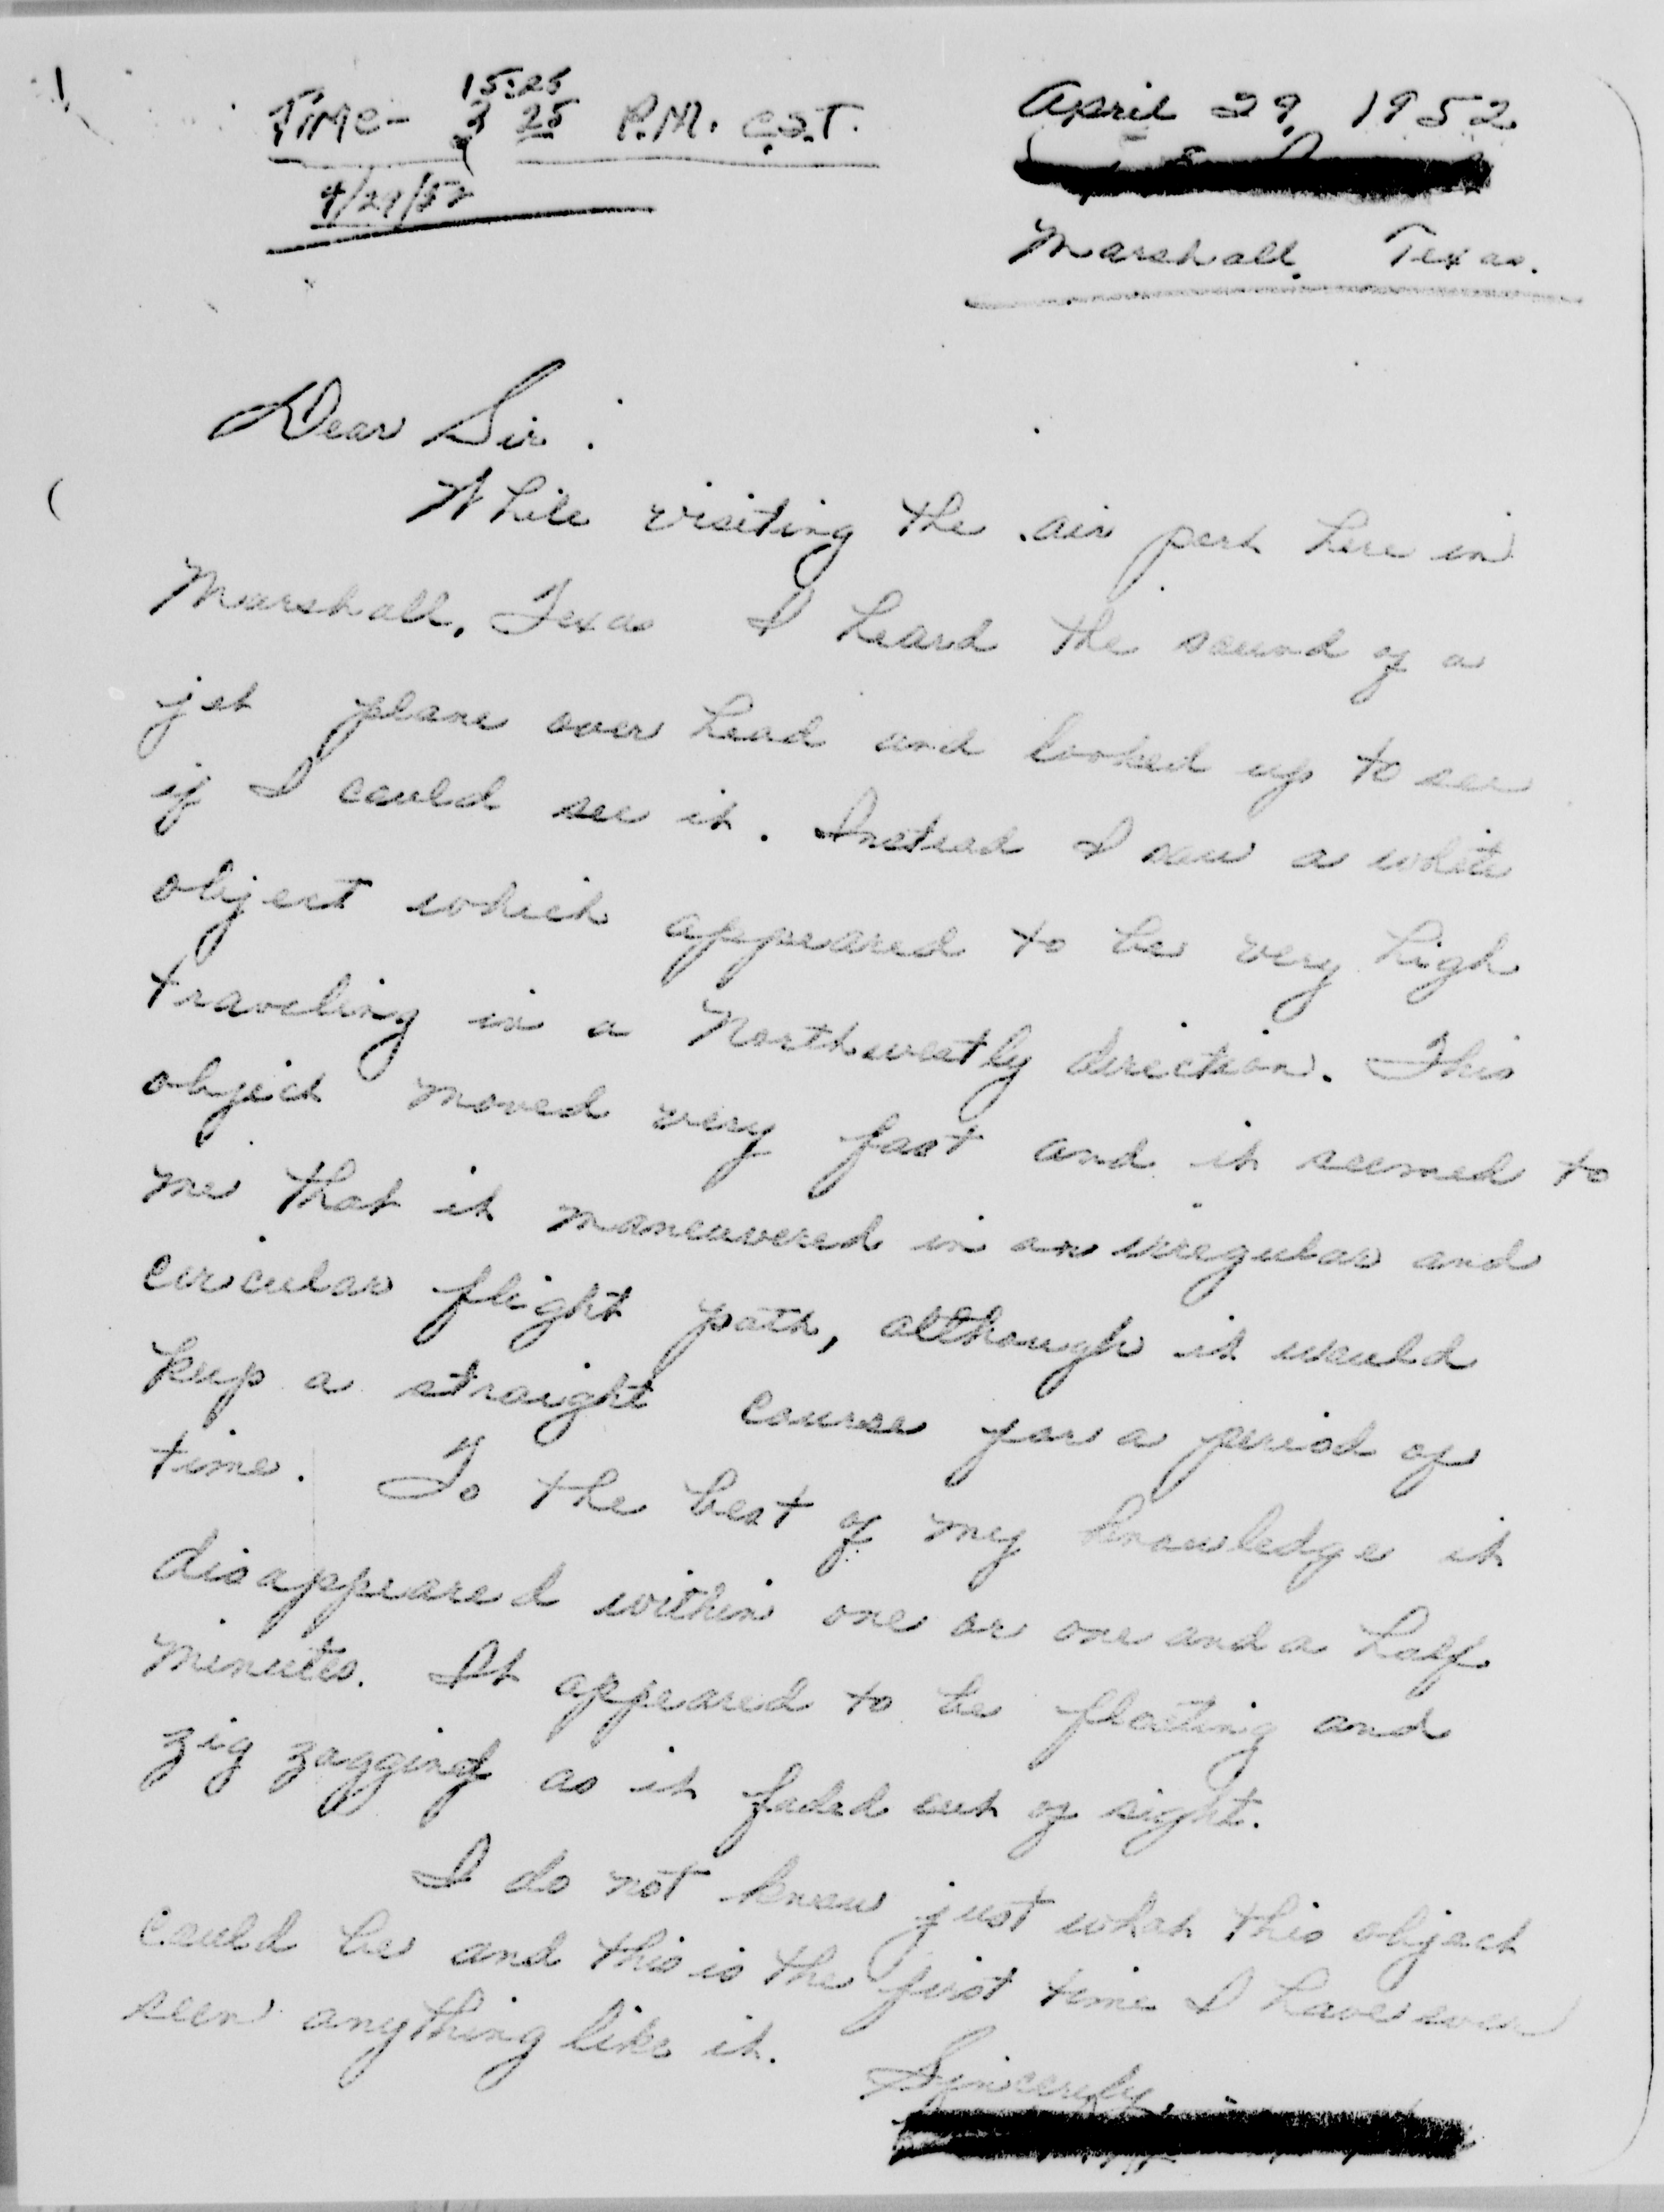 15:25
Time- 3 25 P.M. C.S.T.
4/29/52
April 29, 1952
Marshall, Texas.
Dear Sir:
While visiting the air port here in
Marshall, Texas I heard the sound of a
jet plane over head and looked up to see
if I could see it. Instead I saw a white
object which appeared to be very high
traveling in a Northwestly direction. This
object moved very fast and it seemed to
me that it maneuvered in an irregular and
circular flight path, although it would
keep a straight course for a period of
time. To the best of my knowledge it
disappeared within one or one and a half
minutes. It appeared to be floating and
zig zagging as it faded out of sight.
I do not know just what this object
could be and this is the first time I have ever
seen anything like it.
Sincerely,